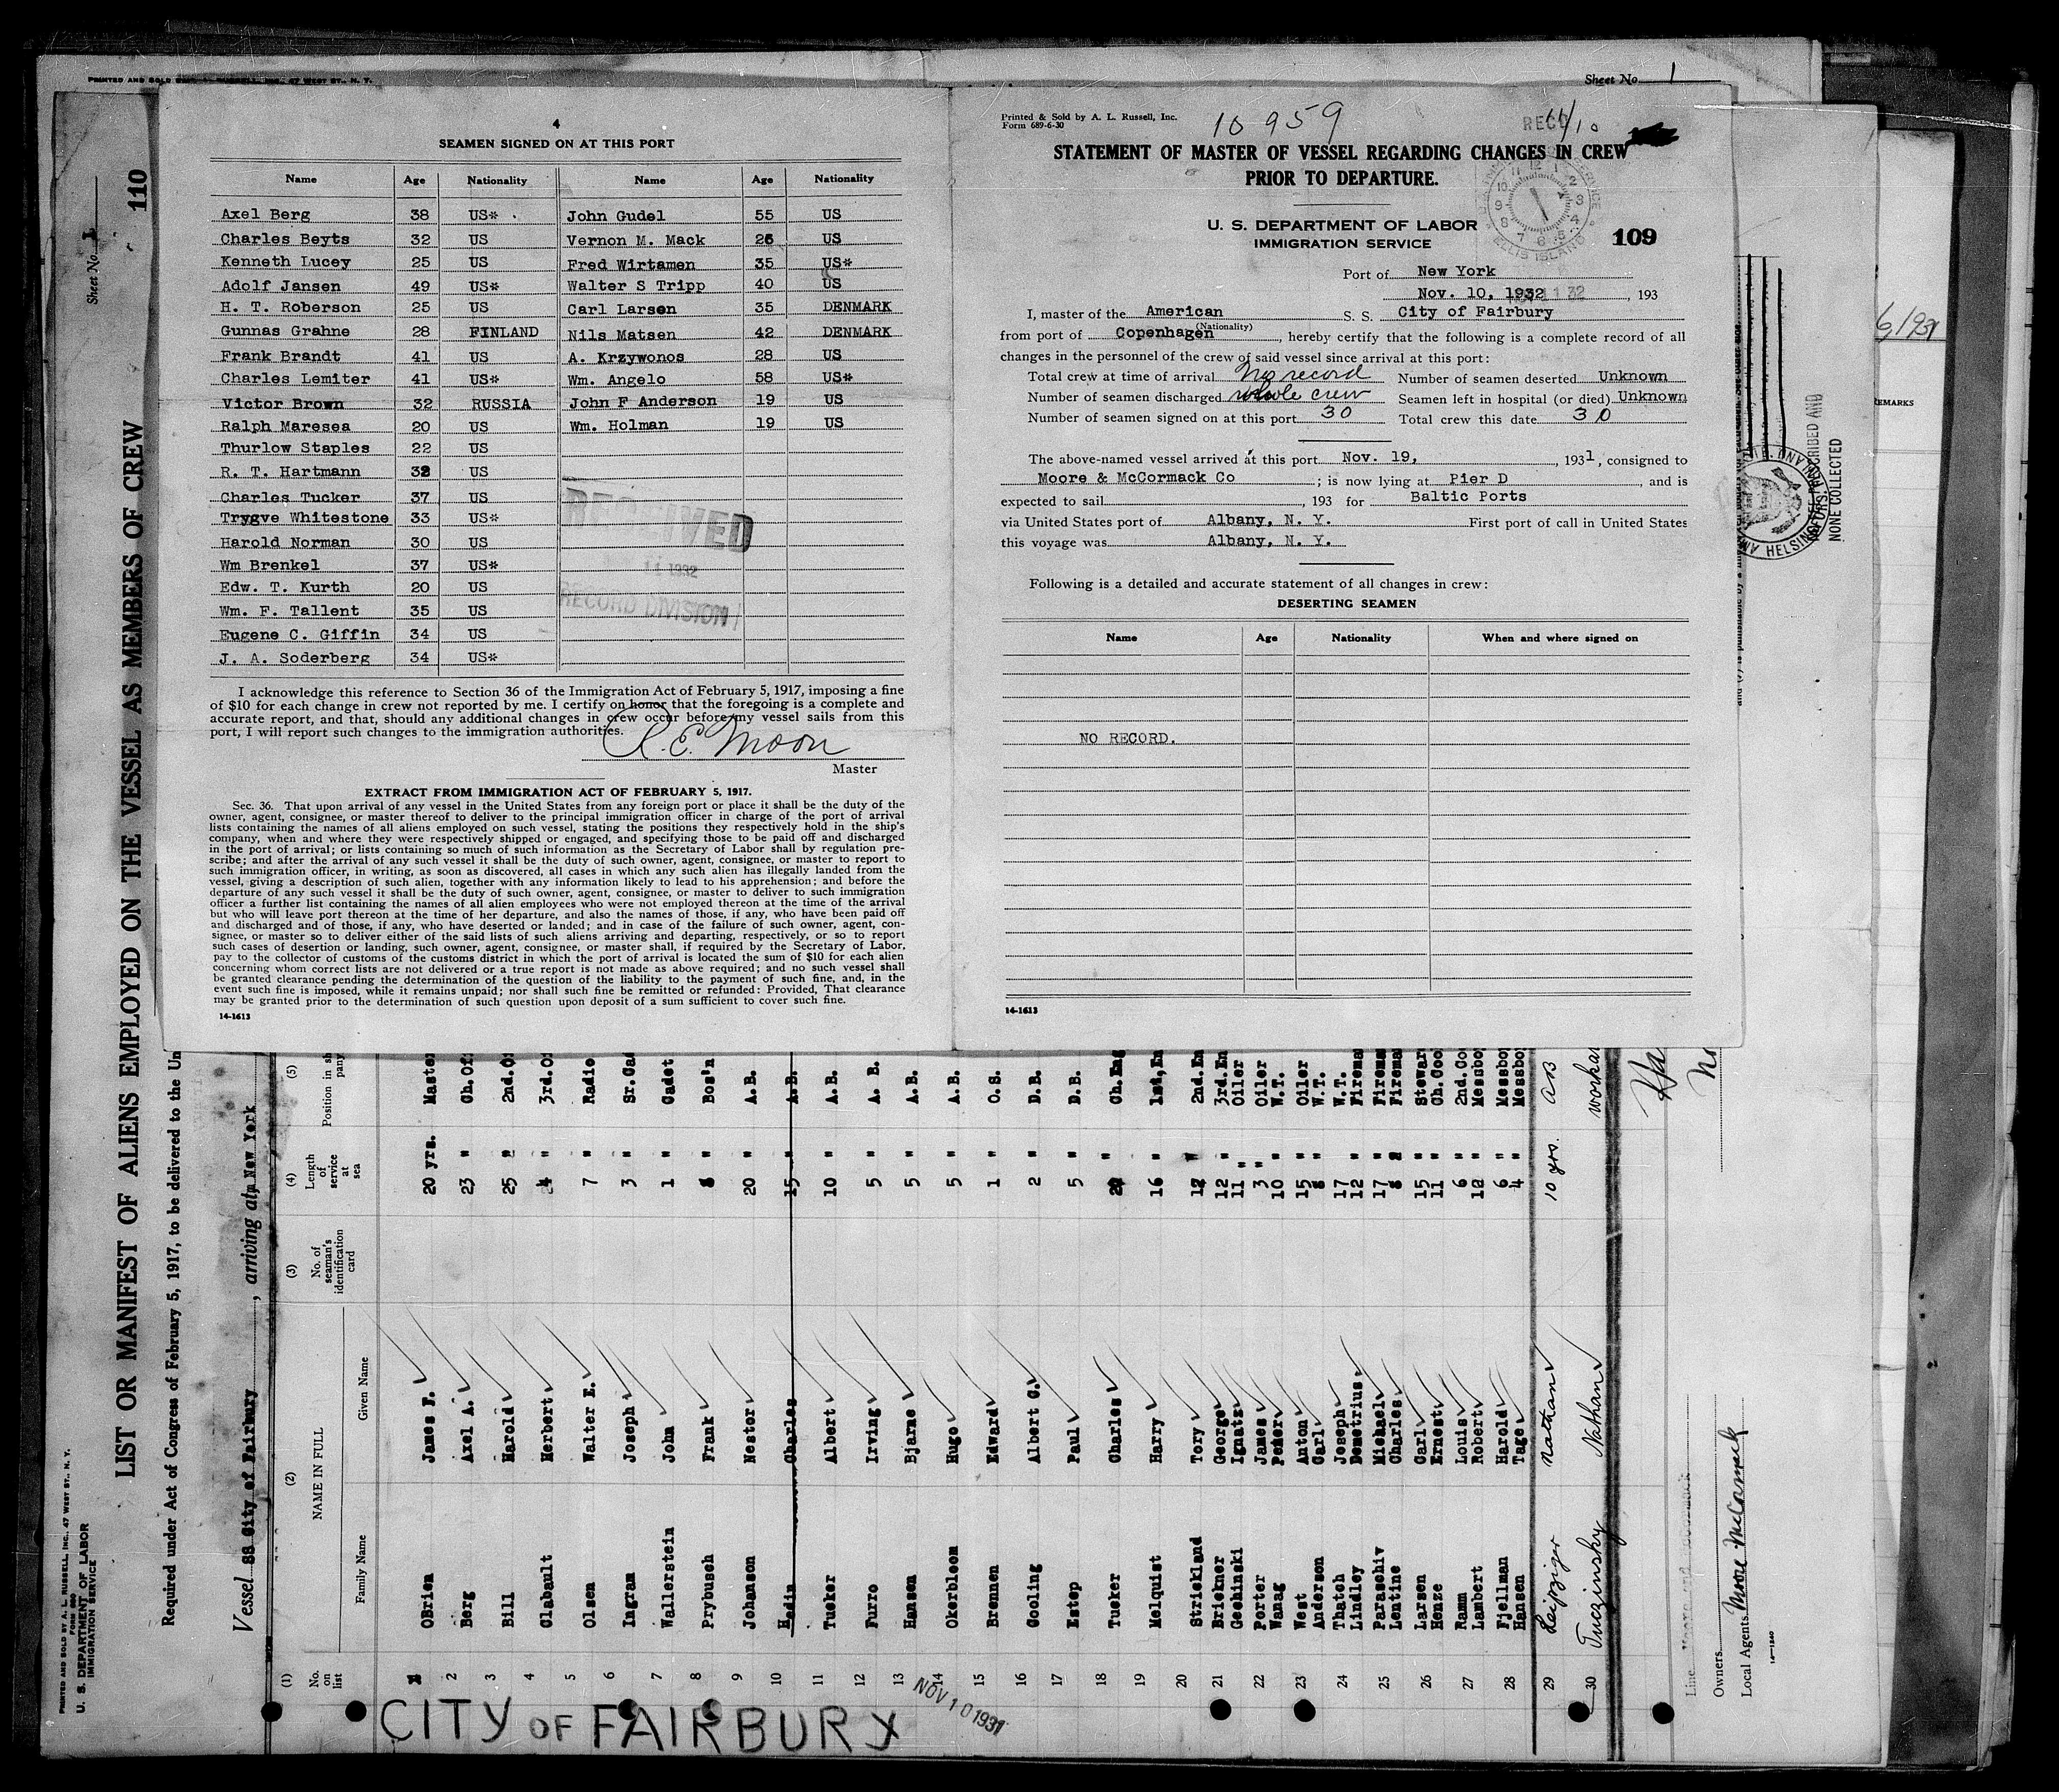 PRINTED AND SOLD
47 WEST ST., N. Y.
Sheet No. 1
4
SEAMEN SIGNED ON AT THIS PORT
Name Age Nationality Name Age Nationality
Axel Berg 38 US* John Gudel 55 US
Charles Beyts 32 US Vernon M. Mack 26 US
Kenneth Lucey 25 US Fred Wirtamen 35 US*
Adolf Jansen 49 US* Walter S Tripp 40 US
H. T. Roberson 25 US Carl Larsen 35 DENMARK
Gunnas Grahne 28 FINLAND Nils Matsen 42 DENMARK
Frank Brandt 41 US A. Krzywonos 28 US
Charles Lemiter 41 US* Wm. Angelo 58 US*
Victor Brown 32 RUSSIA John F Anderson 19 US
Ralph Maresea 20 US Wm. Holman 19 US
Thurlow Staples 22 US
R. T. Hartmann 32 US
Charles Tucker 37 US
Trygve Whitestone 33 US*
Harold Norman 30 US
Wm Brenkel 37 US*
Edw. T. Kurth 20 US
Wm. F. Tallent 35 US
Eugene C. Giffin 34 US
J. A. Soderberg 34 US*
RECEIVED
11 1932
RECORD DIVISION
I acknowledge this reference to Section 36 of the Immigration Act of February 5, 1917, imposing a fine
of $10 for each change in crew not reported by me. I certify on honor that the foregoing is a complete and
accurate report, and that, should any additional changes in crew occur before my vessel sails from this
port, I will report such changes to the immigration authorities.
R. E. Moon
Master
EXTRACT FROM IMMIGRATION ACT OF FEBRUARY 5, 1917.
Sec. 36. That upon arrival of any vessel in the United States from any foreign port or place it shall be the duty of the
owner, agent, consignee, or master thereof to deliver to the principal immigration officer in charge of the port of arrival
lists containing the names of all aliens employed on such vessel, stating the positions they respectively hold in the ship's
company, when and where they were respectively shipped or engaged, and specifying those to be paid off and discharged
in the port of arrival; or lists containing so much of such information as the Secretary of Labor shall by regulation pre-
scribe; and after the arrival of any such vessel it shall be the duty of such owner, agent, consignee, or master to report to
such immigration officer, in writing, as soon as discovered, all cases in which any such alien has illegally landed from the
vessel, giving a description of such alien, together with any information likely to lead to his apprehension; and before the
departure of any such vessel it shall be the duty of such owner, agent, consignee, or master to deliver to such immigration
officer a further list containing the names of all alien employees who were not employed thereon at the time of the arrival
but who will leave port thereon at the time of her departure, and also the names of those, if any, who have been paid off
and discharged and of those, if any, who have deserted or landed; and in case of the failure of such owner, agent, con-
signee, or master so to deliver either of the said lists of such aliens arriving and departing, respectively, or so to report
such cases of desertion or landing, such owner, agent, consignee, or master shall, if required by the Secretary of Labor,
pay to the collector of customs of the customs district in which the port of arrival is located the sum of $10 for each alien
concerning whom correct lists are not delivered or a true report is not made as above required; and no such vessel shall
be granted clearance pending the determination of the question of the liability to the payment of such fine, and, in the
event such fine is imposed, while it remains unpaid; nor shall such fine be remitted or refunded: Provided, That clearance
may be granted prior to the determination of such question upon deposit of a sum sufficient to cover such fine.
14-1613
Printed & Sold by A. L. Russell, Inc.
Form 689-6-30
10959
RECD 11/10
STATEMENT OF MASTER OF VESSEL REGARDING CHANGES IN CREW
PRIOR TO DEPARTURE.
U. S. DEPARTMENT OF LABOR
IMMIGRATION SERVICE
109
ELLIS ISLAND
Port of New York
Nov. 10, 1932, 193
I, master of the American S. S. City of Fairbury
(Nationality)
from port of Copenhagen, hereby certify that the following is a complete record of all
changes in the personnel of the crew of said vessel since arrival at this port:
Total crew at time of arrival No record Number of seamen deserted Unknown
Number of seamen discharged whole crew Seamen left in hospital (or died) Unknown
Number of seamen signed on at this port 30 Total crew this date 30
The above-named vessel arrived at this port Nov. 19, 1931, consigned to
Moore & McCormack Co; is now lying at Pier D, and is
expected to sail, 193 for Baltic Ports
via United States port of Albany, N. Y. First port of call in United States
this voyage was Albany, N. Y.
Following is a detailed and accurate statement of all changes in crew:
DESERTING SEAMEN
Name Age Nationality When and where signed on
NO RECORD.
14-1613
REMARKS
NONE COLLECTED
PRINTED AND SOLD BY A. L. RUSSELL, INC., 47 WEST ST., N. Y.
FORM 680
U. S. DEPARTMENT OF LABOR
IMMIGRATION SERVICE
Sheet No. 1
110
LIST OR MANIFEST OF ALIENS EMPLOYED ON THE VESSEL AS MEMBERS OF CREW
Required under Act of Congress of February 5, 1917, to be delivered to the Un
Vessel SS City of Fairbury, arriving at New York
(1) (2) (3) (4) (5)
No. on list NAME IN FULL No. of seaman's identification card Length of service at sea Position in sh pany
Family Name Given Name
1 OBrien James F. 20 yrs. Master
2 Berg Axel A. 23 " Ch.Of
3 Bill Harold 25 " 2nd.Of
4 Glabault Herbert 24 " 3rd.Of
5 Olsen Walter E. 7 " Radio
6 Ingram Joseph 3 " Sr.Cad
7 Wallerstein John 1 " Cadet
8 Prybusch Frank " Bos'n
9 Johanson Nestor 20 " A.B.
10 Hedin Charles 15 " A.B.
11 Tucker Albert 10 " A.B.
12 Furro Irving 5 " A. B.
13 Hansen Bjarne 5 " A.B.
14 Okerbloom Hugo 5 " A.B.
15 Brennen Edward 1 " O.S.
16 Gooling Albert G. 2 " D.B.
17 Estep Paul 5 " D.B.
18 Tucker Charles " Ch.Eng
19 Melquist Harry 16 " 1st,En
20 Strickland Tory 12 " 2nd.En
21 Brickner George 12 " 3rd.En
Gechinski Ignatz 11 " Oiler
22 Porter James 3 " Oiler
Wanag Peter 10 " W.T.
23 West Anton 15 " Oiler
Anderson Carl " W.T.
24 Thatch Joseph 17 " W.T.
Lindley Demetrius 12 " Firema
25 Paraschiv Michael 17 " Firema
Lentine Charles " Firema
26 Larsen Carl 15 " Stewar
Henze Ernest 11 " Ch.Coo
27 Ramm Louis 6 " 2nd.Co
Lambert Robert 12 " Messbo
28 Fjellman Harold 6 " Messbo
Hansen Tage 4 " Messbo
29 Leipziger Nathan 10 yrs. AB
30 Tuczinsky Nathan workaw
Line Moore and McCormack
Owners
Local Agents Moore McCormack
14-1240
CITY OF FAIRBURY
NOV 10 1931